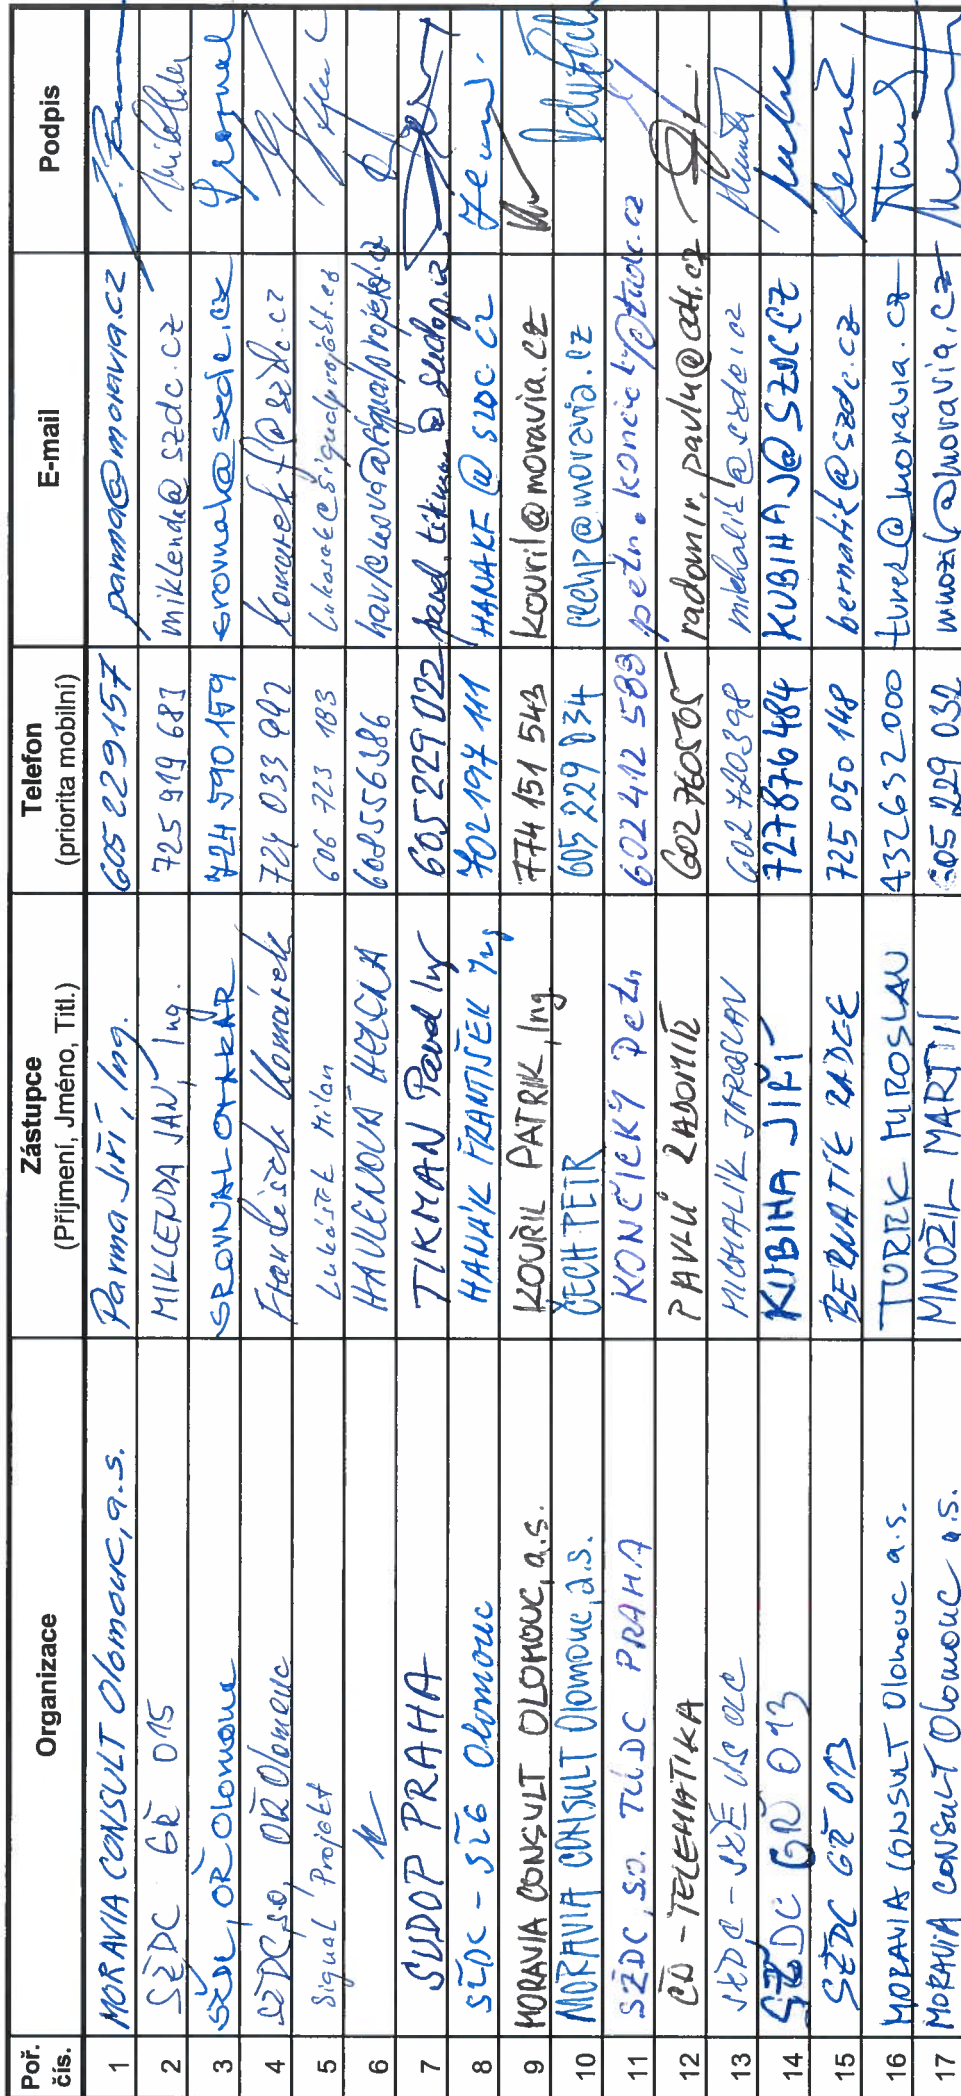 Poř. čís. Organizace Zástupce (Příjmení, Jméno, Titl.) Telefon (priorita mobilní) E-mail Podpis
1 MORAVIA CONSULT Olomouc, a.s. Parma Jiří, Ing. 605 229 157 parma@moravia.cz
2 SŽDC GŘ O15 MIKLENDA JAN, Ing. 725 919 683 miklenda@szdc.cz
3 SŽDC, OŘ Olomouc SROVNAL OTAKAR 724 590 159 srovnal@szdc.cz Srovnal
4 SŽDC, s.o, OŘ Olomouc František Komárek 724 033 992 Komarekf@szdc.cz
5 Signal Projekt Lukášek Milan 606 723 183 Lukasek@signalprojekt.cz
6 HAVLENOVÁ HELENA 608556386 havlenova@signalprojekt.cz
7 SUDOP PRAHA TIKMAN Pavel Ing 605229022 pavel.tikman@sudop.cz
8 SŽDC - SSZ Olomouc HANÁK FRANTIŠEK Ing 702197 111 HANAKF@SZDC.CZ
9 MORAVIA CONSULT OLOMOUC, a.s. KOUŘIL PATRIK, Ing 774 151 543 kouril@moravia.cz
10 MORAVIA CONSULT Olomouc, a.s. ČECH PETR 605 229 034 cechp@moravia.cz
11 SŽDC, s.o. TÚDC PRAHA KONČICKÝ Petr 602 412 583 petr.koncicky@tudc.cz
12 ČD - TELEMATIKA PAVLŮ RADOMÍR 602760505 radomir.pavlu@cdt.cz
13 SŽDC - SŽE MICHALÍK JAROSLAV 602720398 michalik@szdc.cz
14 SŽDC GŘ O13 KUBIHA JIŘÍ 727876484 KUBIHAJ@SZDC.CZ
15 SŽDC GŘ O13 BERNATÍK RADEK 725 050 148 bernatik@szdc.cz
16 MORAVIA CONSULT Olomouc a.s. TUREK MIROSLAV 432632000 turek@moravia.cz
17 MORAVIA CONSULT Olomouc a.s. MNOŽIL MARTIN 605 229 032 mnozil@moravia.cz